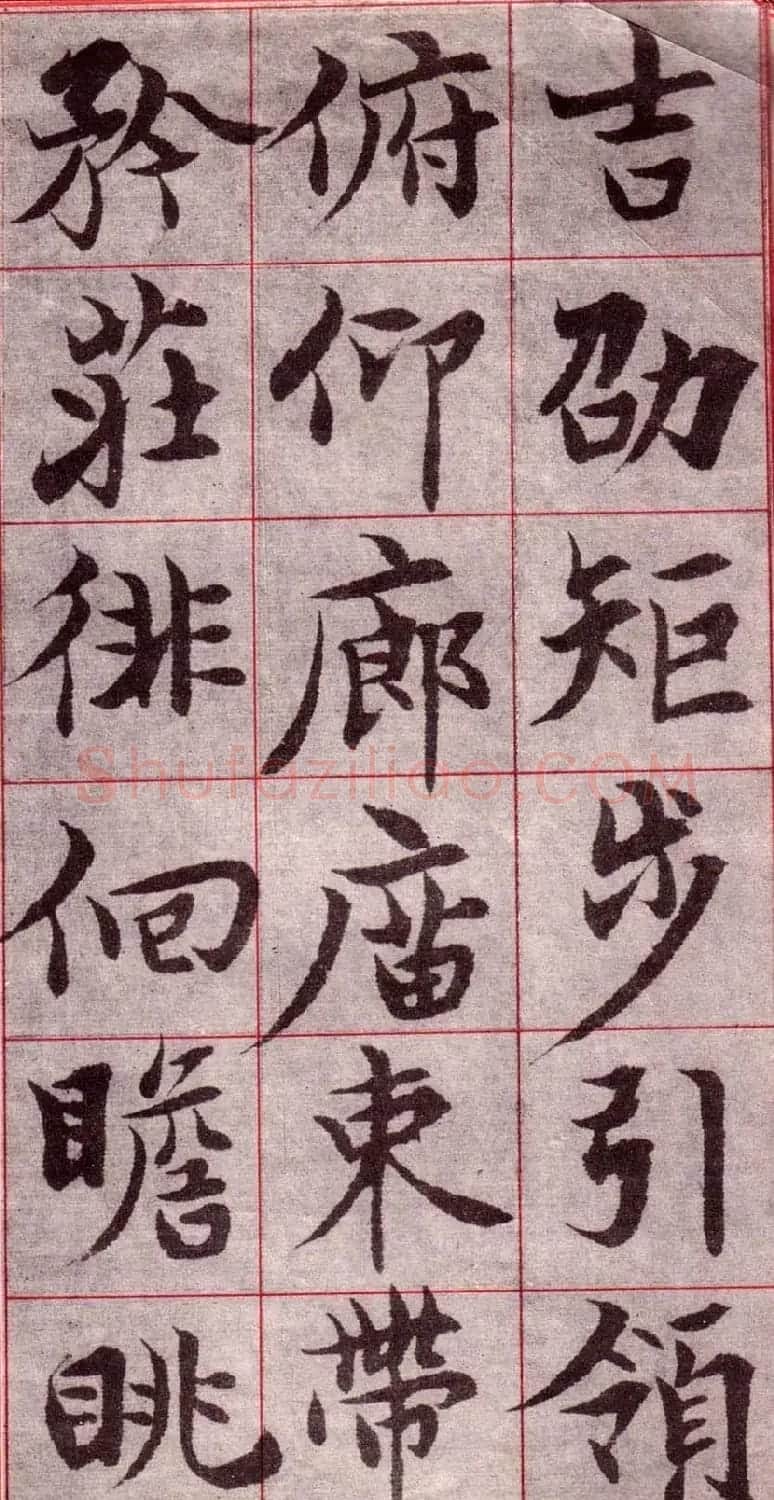 吉劭矩步引領
俯仰廊廟東帶
矜莊徘徊瞻眺
Shufaziliao.COM